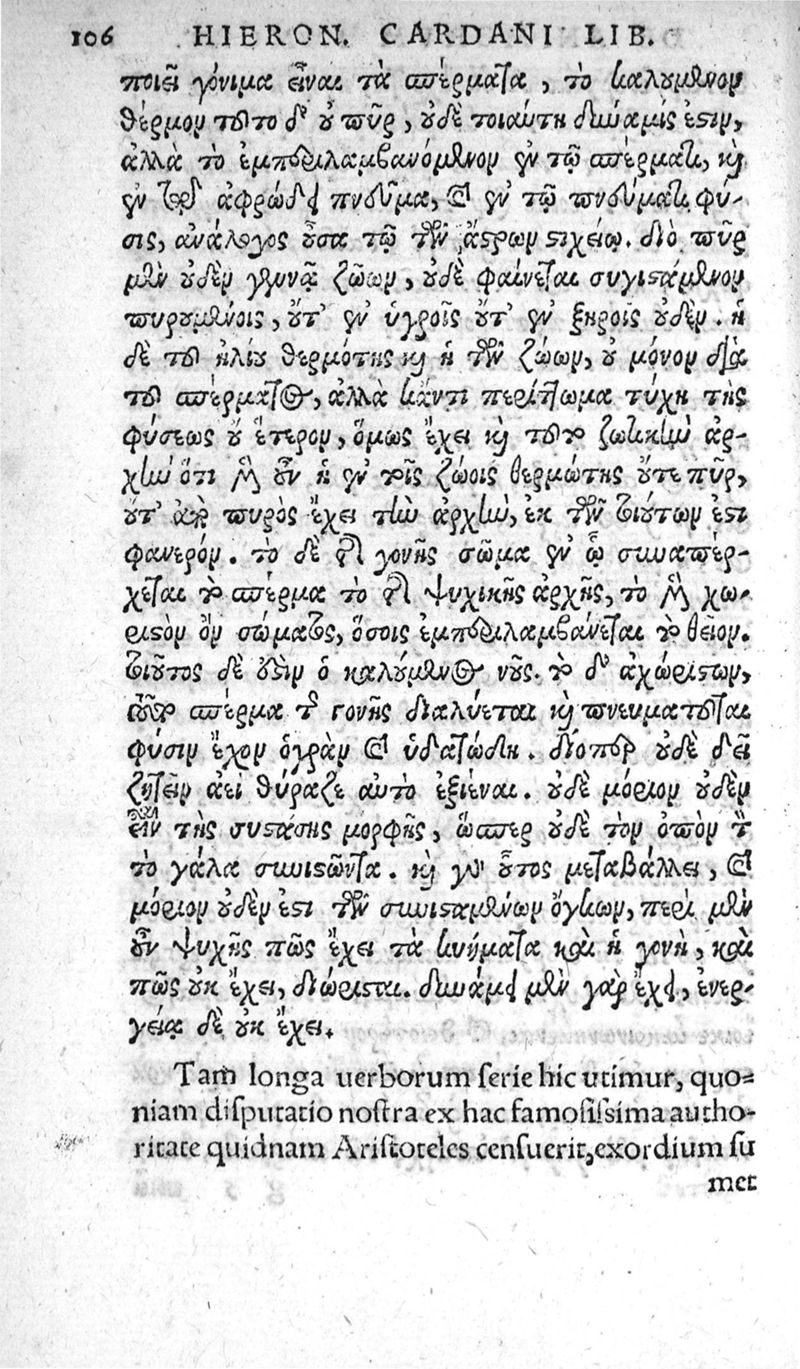 106 HIERON. CARDANI LIB.
ποιεῖ γόνιμα εἶναι τὰ σπέρματα, τὸ καλούμενον
θέρμον τοῦτο δ' οὐ πῦρ, οὐδὲ τοιαύτη δύναμίς ἐστιν,
ἀλλὰ τὸ ἐμπεριλαμβανόμενον ἐν τῷ σπέρματι, καὶ
ἐν τῷ ἀφρώδει πνεῦμα, καὶ ἐν τῷ πνεύματι φύ-
σις, ἀνάλογος οὖσα τῷ τῶν ἄστρων στιχείῳ. διὸ πῦρ
μὲν οὐδὲν γεννᾷ ζῶον, οὐδὲ φαίνεται συγιστάμενον
πυρουμένοις, οὔτ' ἐν ὑγροῖς οὔτ' ἐν ξηροῖς οὐδέν. ἡ
δὲ τοῦ ἡλίου θερμότης καὶ ἡ τῶν ζώων, οὐ μόνον διὰ
τοῦ σπέρματος, ἀλλὰ κἄντι περίττωμα τύχη τῆς
φύσεως οὐ ἕτερον, ὅμως ἔχει καὶ τοῦτο ζωτικὴν ἀρ-
χὴν ὅτι μὲν οὖν ἡ ἐν τοῖς ζώοις θερμώτης οὔτε πῦρ,
οὔτ' ἀπὸ πυρὸς ἔχει τὴν ἀρχὴν, ἐκ τῶν τοιούτων ἐστι
φανερόν. τὸ δὲ τῆς γονῆς σῶμα ἐν ᾧ συναπέρ-
χεται τὸ σπέρμα τὸ τῆς ψυχικῆς ἀρχῆς, τὸ μὲν χω-
ριστὸν ὂν σώματος, ὅσοις ἐμπεριλαμβάνεται τὸ θεῖον.
τοιοῦτος δὲ ἐστὶν ὁ καλούμενος νοῦς. τὸ δ' ἀχώριστων,
τοῦτο σπέρμα τῆς γονῆς διαλύεται καὶ πνευματοῦται
φύσιν ἔχον ὑγρὰν καὶ ὑδατώδη. διόπερ οὐδὲ δεῖ
ζητεῖν ἀεὶ θύραζε αὐτὸ ἐξιέναι. οὐδὲ μόριον οὐδὲν
εἶναι τῆς συστάσης μορφῆς, ὥσπερ οὐδὲ τὸν ὀπὸν τὸν
τὸ γάλα συνιστῶντα. καὶ γὰρ οὗτος μεταβάλλει, καὶ
μόριον οὐδέν ἐστι τῶν συνισταμένων ὄγκων, περὶ μὲν
οὖν ψυχῆς πῶς ἔχει τὰ κυήματα καὶ ἡ γονὴ, καὶ
πῶς οὐκ ἔχει, διώρισται. δυνάμει μὲν γὰρ ἔχει, ἐνερ-
γείᾳ δὲ οὐκ ἔχει.
Tam longa uerborum serie hic utimur, quo-
niam disputatio nostra ex hac famosissima autho-
ritate quidnam Aristoteles censuerit, exordium su
met